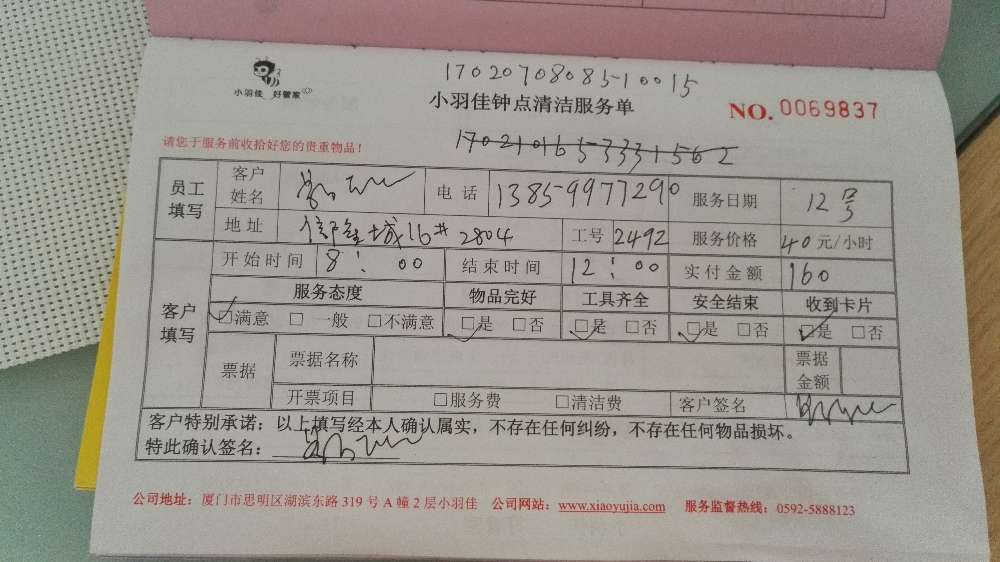 1702070808510015
小羽佳 好管家
小羽佳钟点清洁服务单
NO. 0069837
请您于服务前收拾好您的贵重物品！
1702101653331562
员工填写 客户姓名 电话 13859977290 服务日期 12号
地址 16# 2804 工号 2492 服务价格 40元/小时
客户填写 开始时间 8:00 结束时间 12:00 实付金额 160
服务态度 物品完好 工具齐全 安全结束 收到卡片
☑满意 □一般 □不满意 ☑是 □否 ☑是 □否 ☑是 □否 ☑是 □否
票据 票据名称 票据金额
开票项目 □服务费 □清洁费 客户签名
客户特别承诺：以上填写经本人确认属实，不存在任何纠纷，不存在任何物品损坏。
特此确认签名：
公司地址：厦门市思明区湖滨东路 319 号 A 幢 2 层小羽佳 公司网站：www.xiaoyujia.com 服务监督热线：0592-5888123